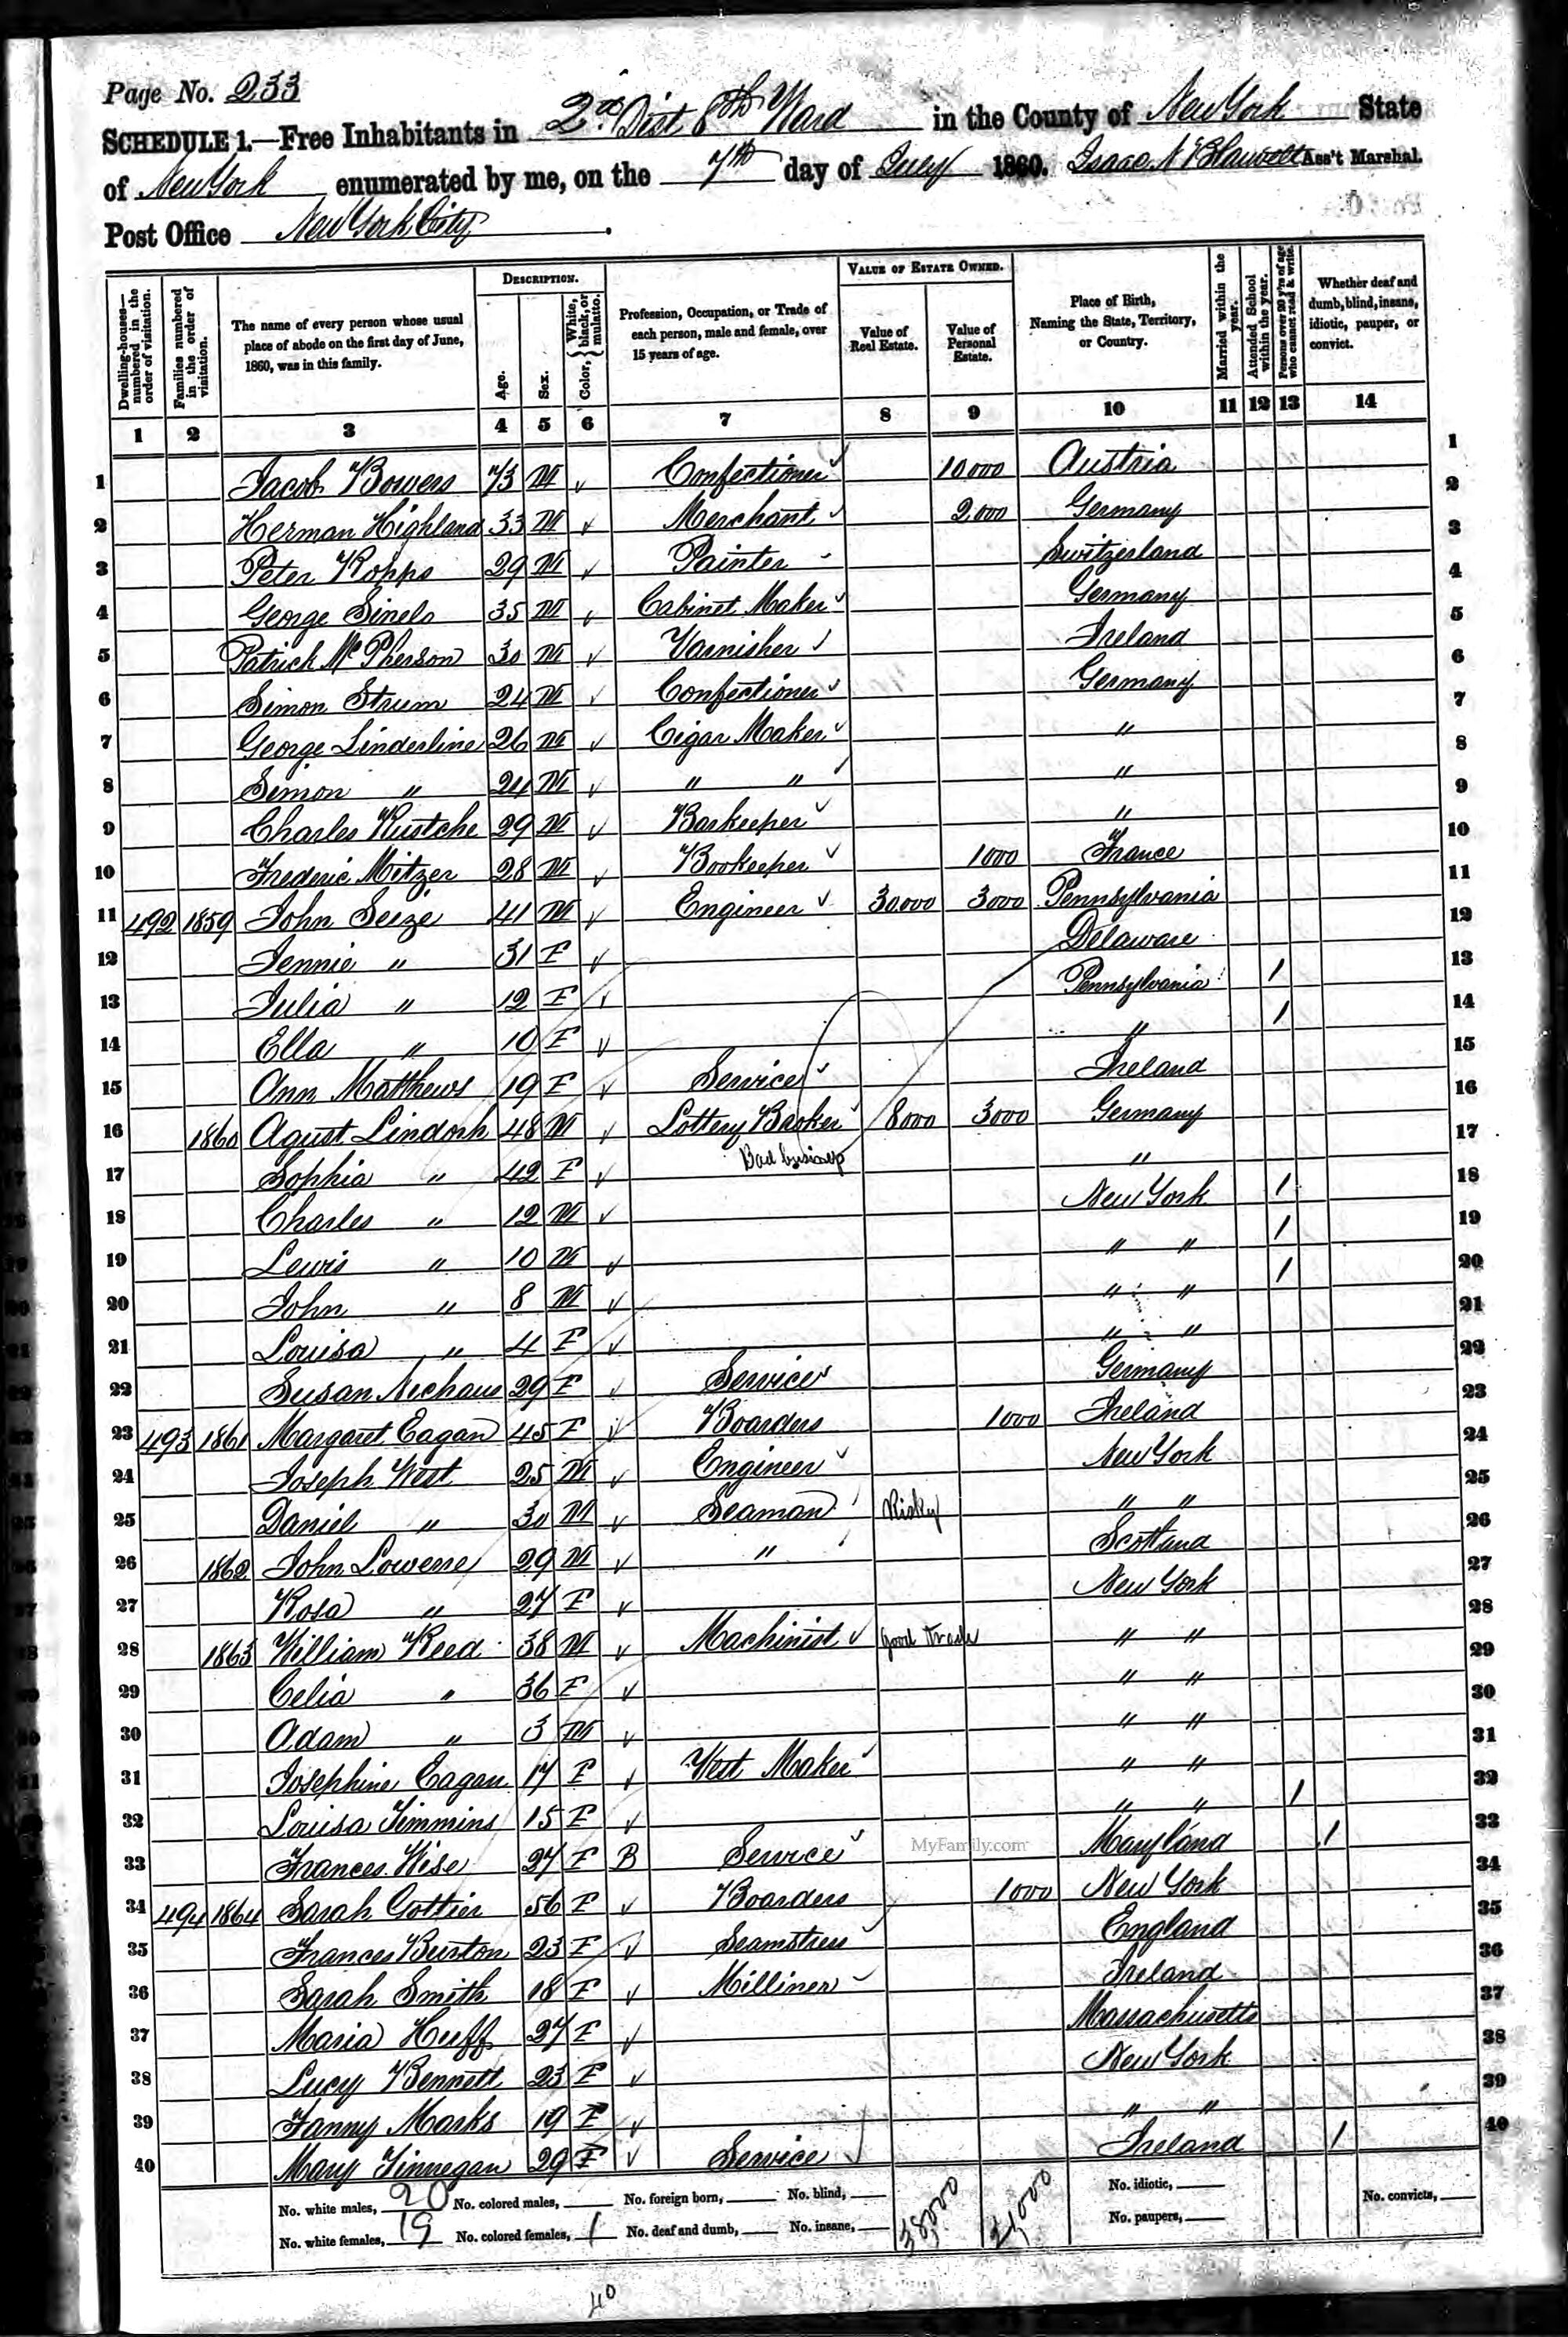 Page No. 233
SCHEDULE 1.—Free Inhabitants in 2nd Dist 8th Ward in the County of New York State
of New York enumerated by me, on the 7th day of July 1860. Isaac Ass't Marshal.
Post Office New York City.
DESCRIPTION. VALUE OF ESTATE OWNED.
Dwelling-houses—numbered in the order of visitation. Families numbered in the order of visitation. The name of every person whose usual place of abode on the first day of June, 1860, was in this family. Age. Sex. Color, { White, black, or mulatto. Profession, Occupation, or Trade of each person, male and female, over 15 years of age. Value of Real Estate. Value of Personal Estate. Place of Birth, Naming the State, Territory, or Country. Married within the year. Attended School within the year. Persons over 20 y'rs of age who cannot read & write. Whether deaf and dumb, blind, insane, idiotic, pauper, or convict.
1 2 3 4 5 6 7 8 9 10 11 12 13 14
1 Jacob Bowers 73 M ✓ Confectioner ✓ 10000 Austria 1
2 Herman Highland 33 M ✓ Merchant ✓ 2.000 Germany 2
3 Peter Kopps 29 M ✓ Painter Switzerland 3
4 George Sinels 35 M ✓ Cabinet Maker ✓ Germany 4
5 Patrick McPherson 30 M ✓ Varnisher ✓ Ireland 5
6 Simon Strum 24 M ✓ Confectioner ✓ Germany 6
7 George Linderline 26 M ✓ Cigar Maker ✓ " 7
8 Simon " 24 M ✓ " " ✓ " 8
9 Charles Kustche 29 M ✓ Barkeeper ✓ " 9
10 Frederic Mitzer 28 M ✓ Bookeeper ✓ 1000 France 10
11 492 1859 John Seize 41 M ✓ Engineer ✓ 30000 3000 Pennsylvania 11
12 Jennie " 31 F ✓ Delaware 12
13 Julia " 12 F ✓ Pennsylvania 1 13
14 Ella " 10 F ✓ " 1 14
15 Ann Matthews 19 F ✓ Service ✓ Ireland 15
16 1860 Agust Lindosh 48 M ✓ Lottery Broker ✓ 8000 3000 Germany 16
17 Sophia " 42 F ✓ Bad business " 17
18 Charles " 12 M ✓ New York 1 18
19 Lewis " 10 M ✓ " " 1 19
20 John " 8 M ✓ " " 1 20
21 Louisa " 4 F ✓ " " 21
22 Susan Nechaus 29 F ✓ Service Germany 22
23 493 1861 Margaret Eagan 45 F ✓ Boarders 1000 Ireland 23
24 Joseph West 25 M ✓ Engineer ✓ New York 24
25 Daniel " 30 M ✓ Seaman Risky " " 25
26 1862 John Lowerre 29 M ✓ " Scotland 26
27 Rosa " 27 F ✓ New York 27
28 1863 William Reed 38 M ✓ Machinist ✓ good trade " " 28
29 Celia " 36 F ✓ " " 29
30 Adam " 3 M ✓ " " 30
31 Josephine Eagan 17 F ✓ Vest Maker ✓ " " 31
32 Louisa Timmins 15 F ✓ " " 1 32
33 Frances Wise 27 F B Service ✓ Maryland 1 33
34 494 1864 Sarah Cottier 56 F ✓ Boarders 1000 New York 34
35 Frances Burton 23 F ✓ Seamstress England 35
36 Sarah Smith 18 F ✓ Milliner Ireland 36
37 Maria Huff 27 F ✓ Massachusetts 37
38 Lucy Bennett 23 F ✓ New York 38
39 Fanny Marks 19 F ✓ " " 39
40 Mary Finnegan 29 F ✓ Service Ireland 1 40
MyFamily.com
No. white males, 20 No. colored males, No. foreign born, No. blind, 38,000 21,000 No. idiotic, No. convicts,
No. white females, 19 No. colored females, 1 No. deaf and dumb, No. insane, No. paupers,
40